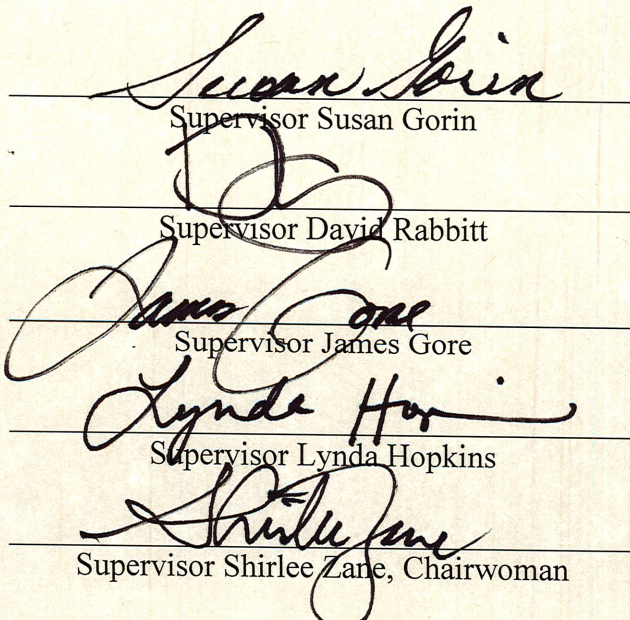 Susan Gorin
Supervisor Susan Gorin
Supervisor David Rabbitt
James Gore
Supervisor James Gore
Lynda Hop
Supervisor Lynda Hopkins
Shirlee Zane
Supervisor Shirlee Zane, Chairwoman